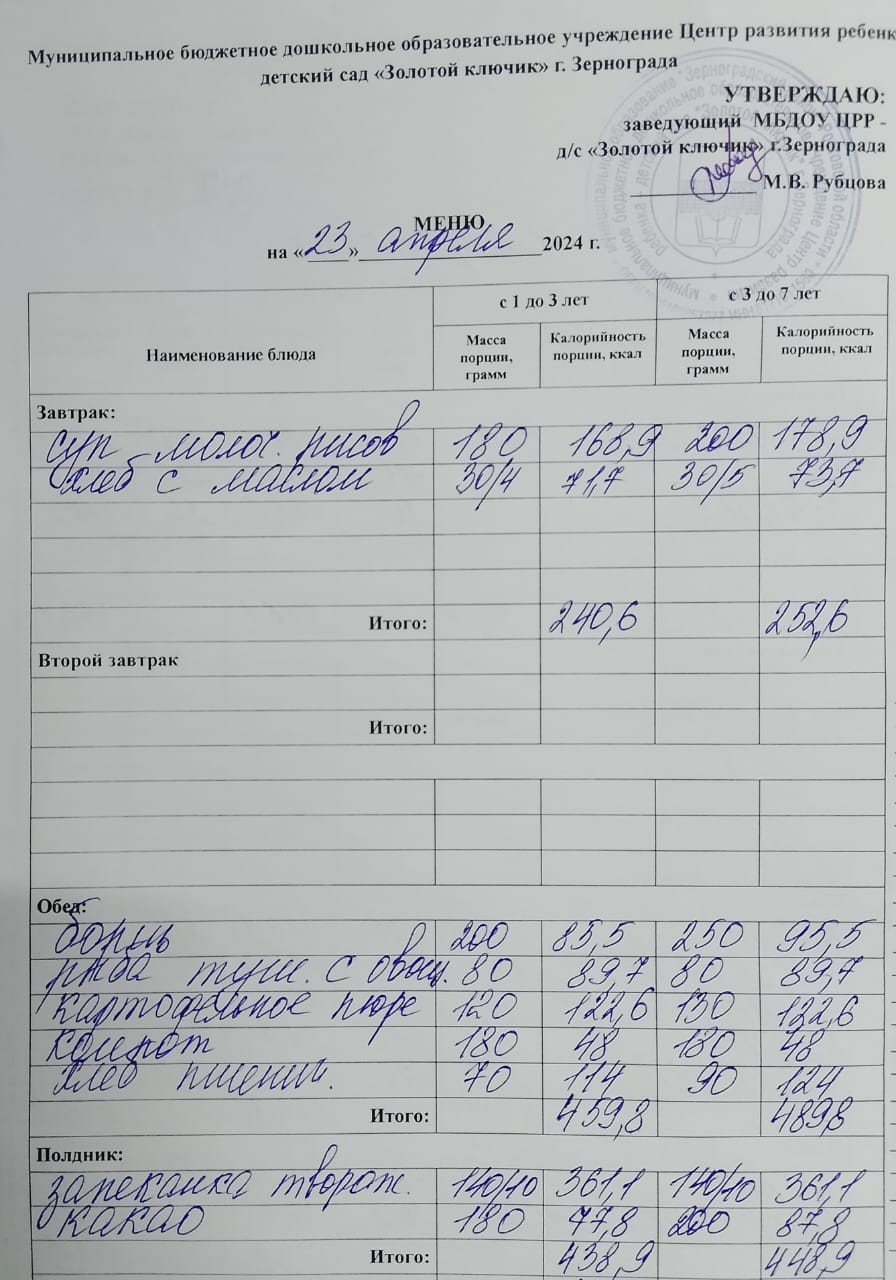 Муниципальное бюджетное дошкольное образовательное учреждение Центр развития ребенк
детский сад «Золотой ключик» г. Зернограда
УТВЕРЖДАЮ:
заведующий МБДОУ ЦРР -
д/с «Золотой ключик» г.Зернограда
М.В. Рубцова
МЕНЮ
на «23» апреля 2024 г.
Наименование блюда с 1 до 3 лет с 3 до 7 лет
Масса порции, грамм Калорийность порции, ккал Масса порции, грамм Калорийность порции, ккал
Завтрак:
суп молоч. рисов 180 168,9 200 178,9
хлеб с маслом 30/4 71,7 30/5 73,7
Итого: 240,6 252,6
Второй завтрак
Итого:
Обед:
борщ 200 85,5 250 95,5
рыба туш. с овощ. 80 89,7 80 89,7
картофельное пюре 120 122,6 130 122,6
компот 180 48 180 48
хлеб пшенич. 70 114 90 124
Итого: 459,8 489,8
Полдник:
запеканка творож. 140/10 361,1 140/10 361,1
какао 180 77,8 200 87,8
Итого: 438,9 448,9